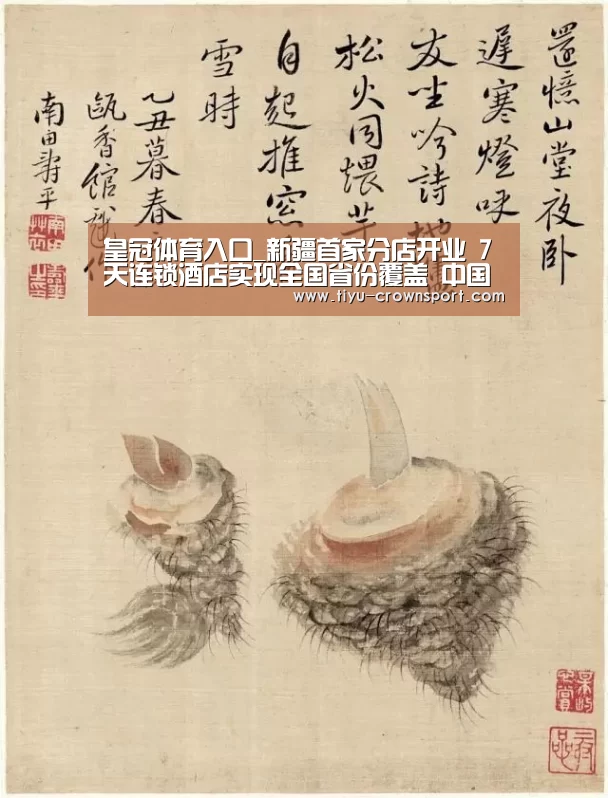 還憶山堂夜卧
遲寒燈呼
友坐吟詩地爐
松火同煨芋
自起推窓
雪時
乙丑暮春
甌香館戲作
南田壽平
皇冠体育入口_新疆首家分店开业 7
天连锁酒店实现全国省份覆盖 中国
www.tiyu-crownsport.com